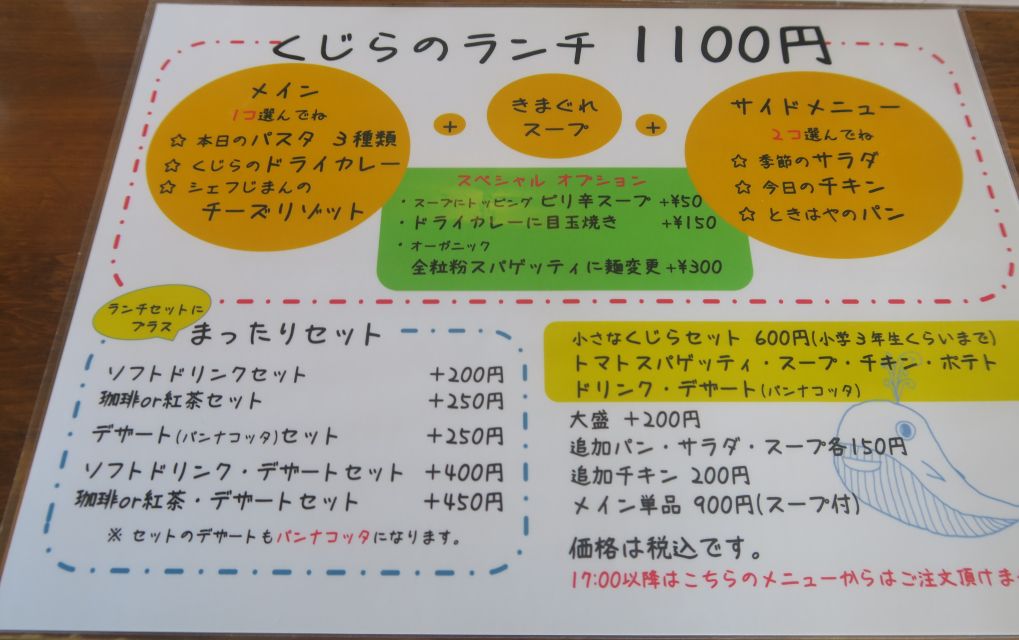 くじらのランチ 1100円
メイン
1コ選んでね
☆ 本日のパスタ 3種類
☆ くじらのドライカレー
☆ シェフじまんの
チーズリゾット
+
きまぐれ
スープ
+
サイドメニュー
2コ選んでね
☆ 季節のサラダ
☆ 今日のチキン
☆ ときはやのパン
スペシャル オプション
・スープにトッピング ピリ辛スープ +¥50
・ドライカレーに目玉焼き +¥150
・オーガニック
全粒粉スパゲッティに麺変更 +¥300
ランチセットに
プラス
まったりセット
ソフトドリンクセット +200円
珈琲or紅茶セット +250円
デザート(パンナコッタ)セット +250円
ソフトドリンク・デザートセット +400円
珈琲or紅茶・デザートセット +450円
※ セットのデザートもパンナコッタになります。
小さなくじらセット 600円(小学3年生くらいまで)
トマトスパゲッティ・スープ・チキン・ポテト
ドリンク・デザート(パンナコッタ)
大盛 +200円
追加パン・サラダ・スープ各150円
追加チキン 200円
メイン単品 900円(スープ付)
価格は税込です。
17:00以降はこちらのメニューからはご注文頂けま